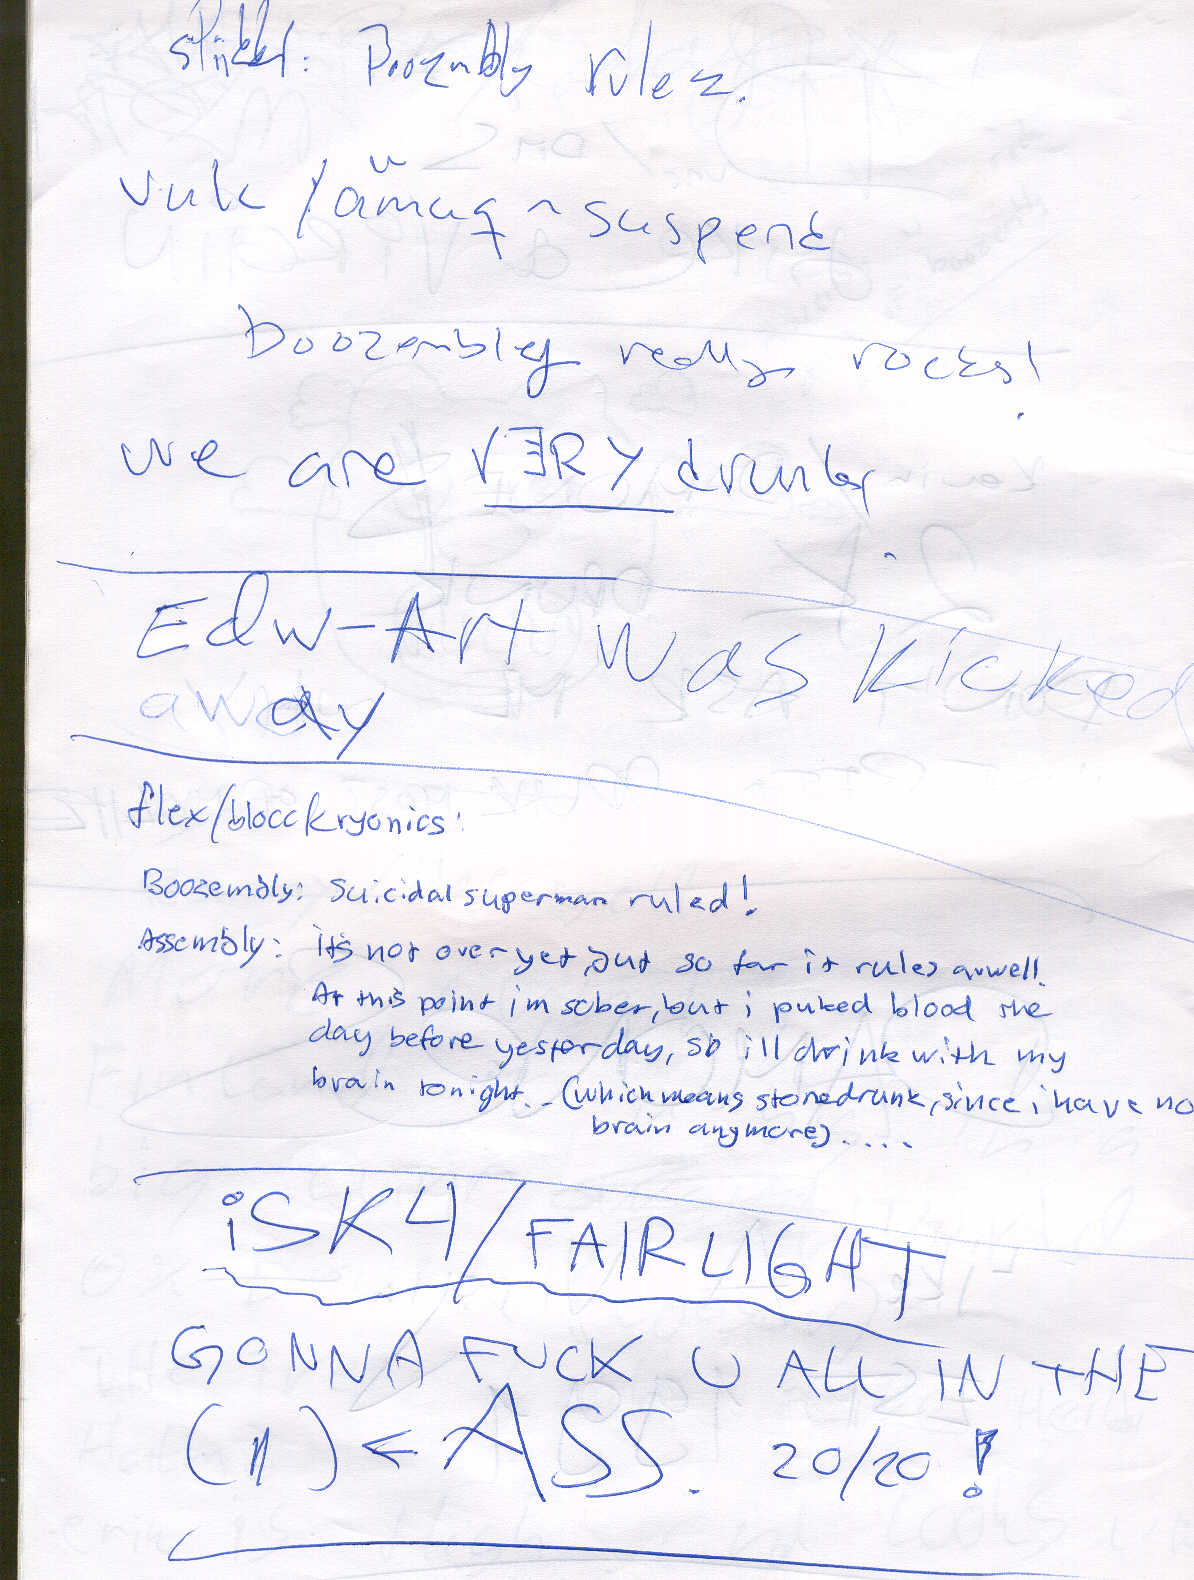 Boozembly rulez.
vuk / ~ suspend
boozembley really rocks!
we are VERY drunk
Edw-Art was kicked
away
flex/blocckryonics:
Boozembly: Suicidal superman ruled!
Assembly: it's not over yet, but so far it rules aswell!
At this point im sober, but i puked blood the
day before yesterday, so i'll drink with my
brain tonight... (which means stonedrunk, since i have no
brain anymore)....
iSK4/FAIRLIGHT
GONNA FUCK U ALL IN THE
( ) ← ASS. 20/20!